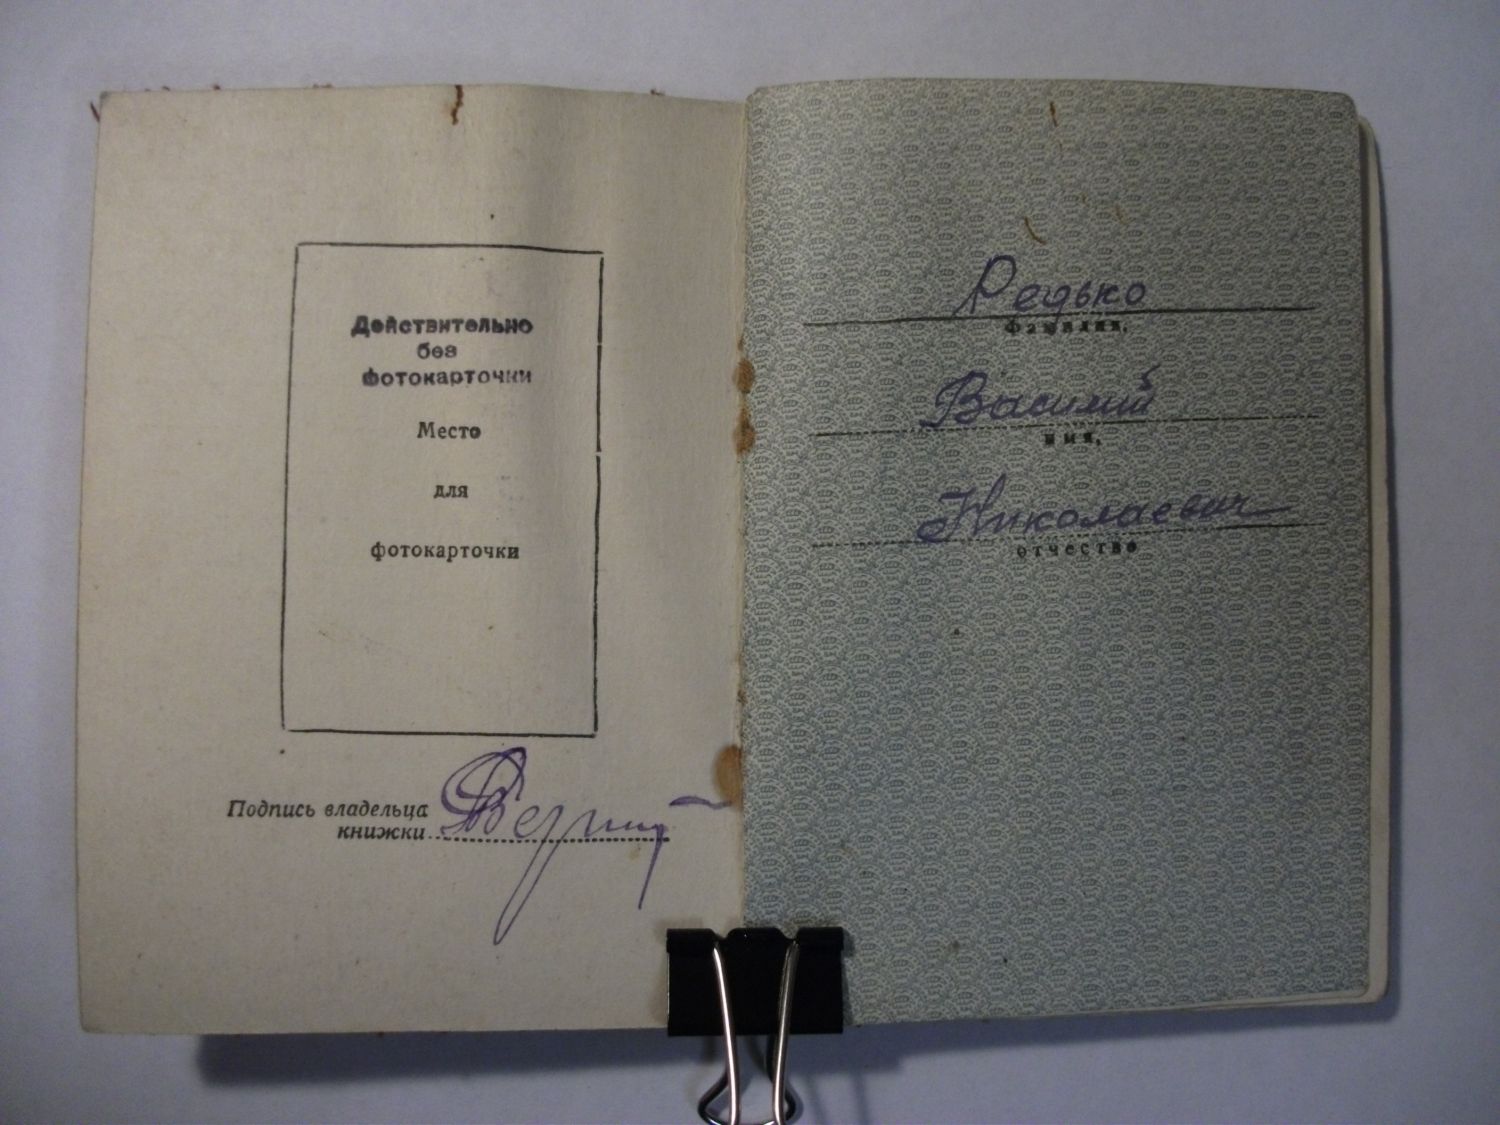 Действительно
без
фотокарточки
Место
для
фотокарточки
Подпись владельца
книжки
Редько
фамилия,
Василий
имя,
Николаевич
отчество